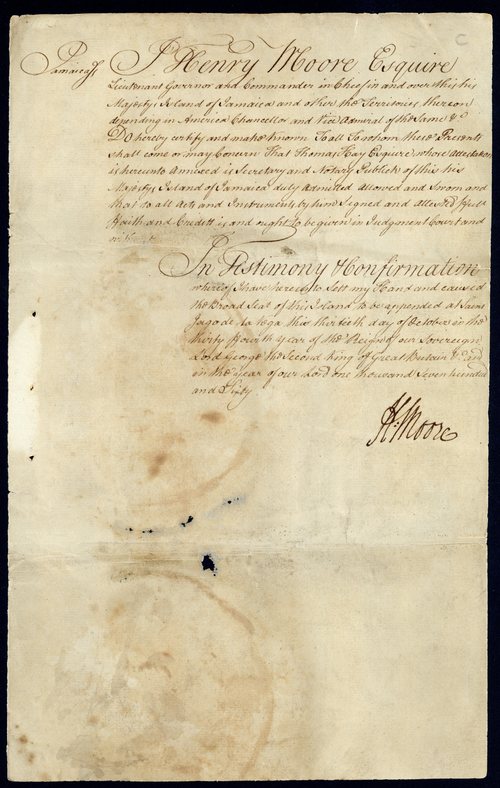 Jamaica ss
I Henry Moore Esquire
Lieutenant Govrnor and Commander in Cheif in and over this his
Majestys Island of Jamaica and other the Territories thereon
depending in America Chancellor and Vice Admiral of the Same &c
Do hereby certify and make known To all To whom these Presents
shall come or may Concern That Thomas Hay Esquire whose Attestation
is hereunto Annixed is Secretary and Notary Publick of this his
Majestys Island of Jamaica duly Admitted Allowed and Sworn and
that to all Acts and Instruments by him Signed and Attested full
Faith and Creditt is and ought to be given in Judgment Court and
without
In Testimony & Confirmation
whereof I have hereunto Sett my Hand and caused
the Broad Seal of this Island to be appended at Saint
Jago de la Vega this thirtieth day of October in the
thirty fourth year of the Reign of our Sovereign
Lord George the Second King of Great Britain &c and
in the year of our Lord one thousand Seven hundred
and Sixty
H: Moore
C